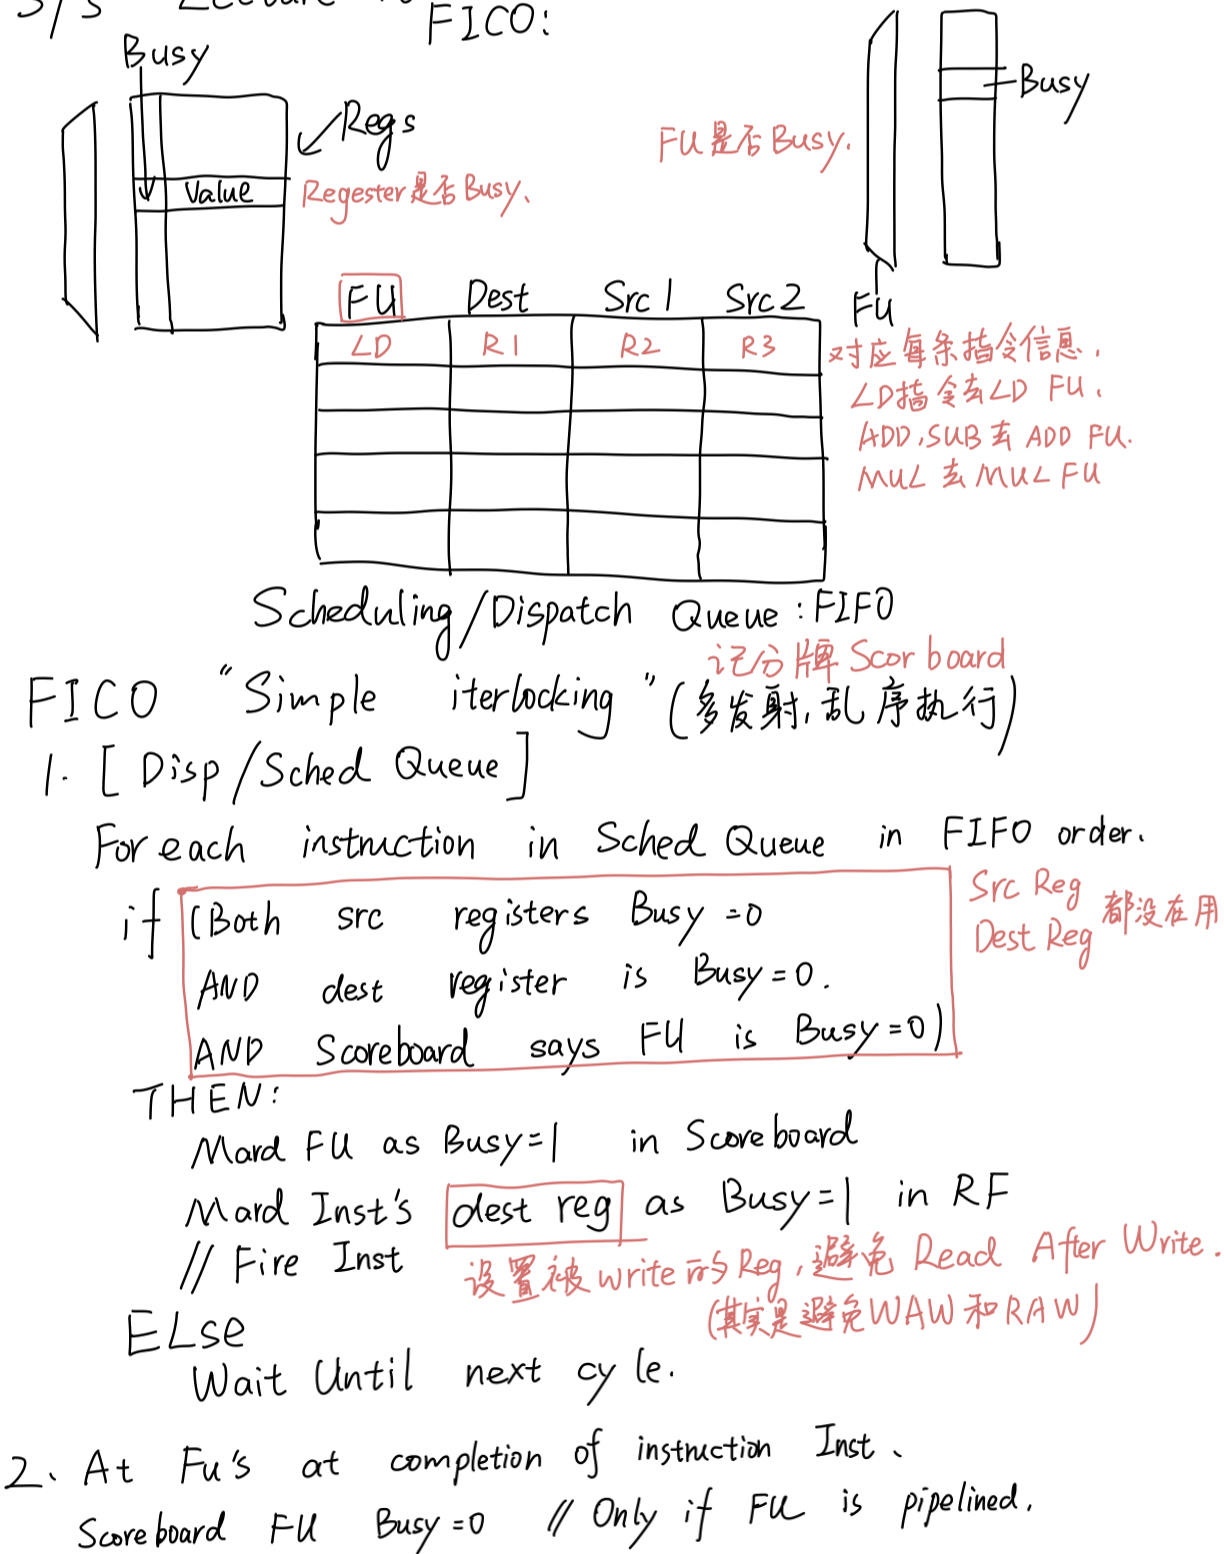 FICO:
Busy
Regs
Value
Regester是否Busy、
Busy
FU是否Busy.
FU
FU Dest Src1 Src2
LD R1 R2 R3
对应每条指令信息,
LD指令去LD FU、
ADD,SUB去ADD FU.
MUL去MUL FU
Scheduling/Dispatch Queue:FIFO
记分牌 Scorboard
FICO "Simple iterlocking"(多发射,乱序执行)
1. [Disp/Sched Queue]
For each instruction in Sched Queue in FIFO order.
if (Both src registers Busy=0
AND dest register is Busy=0.
AND Scoreboard says FU is Busy=0)
Src Reg
Dest Reg 都没在用
THEN:
Mard FU as Busy=1 in Scoreboard
Mard Inst's dest reg as Busy=1 in RF
// Fire Inst
设置被write的Reg,避免 Read After Write.
(其实是避免WAW和RAW)
ELse
Wait Until next cycle.
2、At Fu's at completion of instruction Inst、
Scoreboard FU Busy=0 // Only if FU is pipelined.